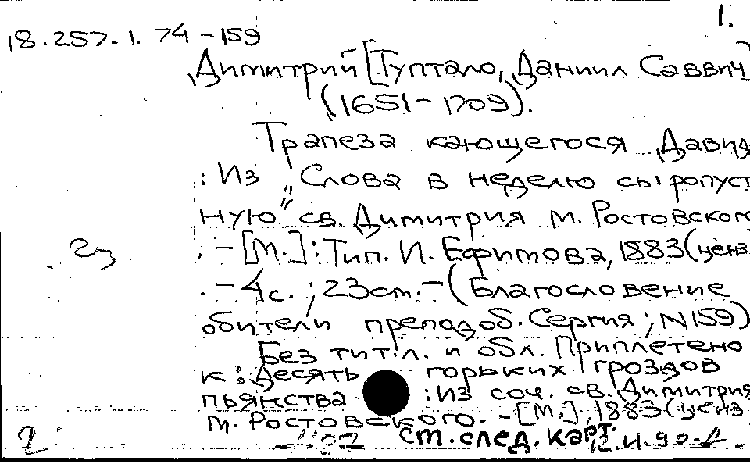 1.
18.257.1.74-159
Димитрий [Туптало, Даниил Саввич]
(1651-1709).
Трапеза кающегося Давид
: Из „Слова в неделю сыропуст
ную" св. Димитрия м. Ростовского
. - [М.]: Тип. И. Ефимова, 1883 (ценз.
2з
. - 4 с. ; 23 см. - (Благословение
обители преподоб. Сергия; N159)
Без тит. л. и обл. Приплетено
к: Десять горьких гроздов
пьянства : Из соч. св. Димитрия
м. Ростовского. - [М.], 1883 (ценз
2 См. след. карт.